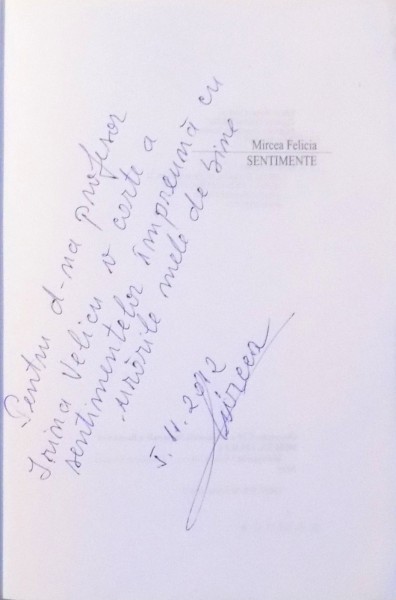 Mircea Felicia
SENTIMENTE
Pentru d-na profesor
Irina Velicu o carte a
sentimentelor împreună cu
urările mele de bine
I. 11. 2012
Mircea